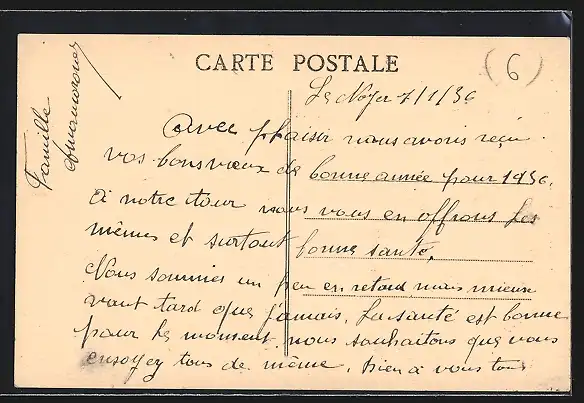 CARTE POSTALE
6
Le Noyer 7/1/36
Avec plaisir nous avons reçu
vos bons vœux de bonne année pour 1936.
A notre tour nous vous en offrons les
mêmes et surtout bonne santé.
Nous sommes un peu en retard mais mieux
vaut tard que jamais. La santé est bonne
pour le moment nous souhaitons que vous
ensoyez tous de même. Bien à vous tous
Famille